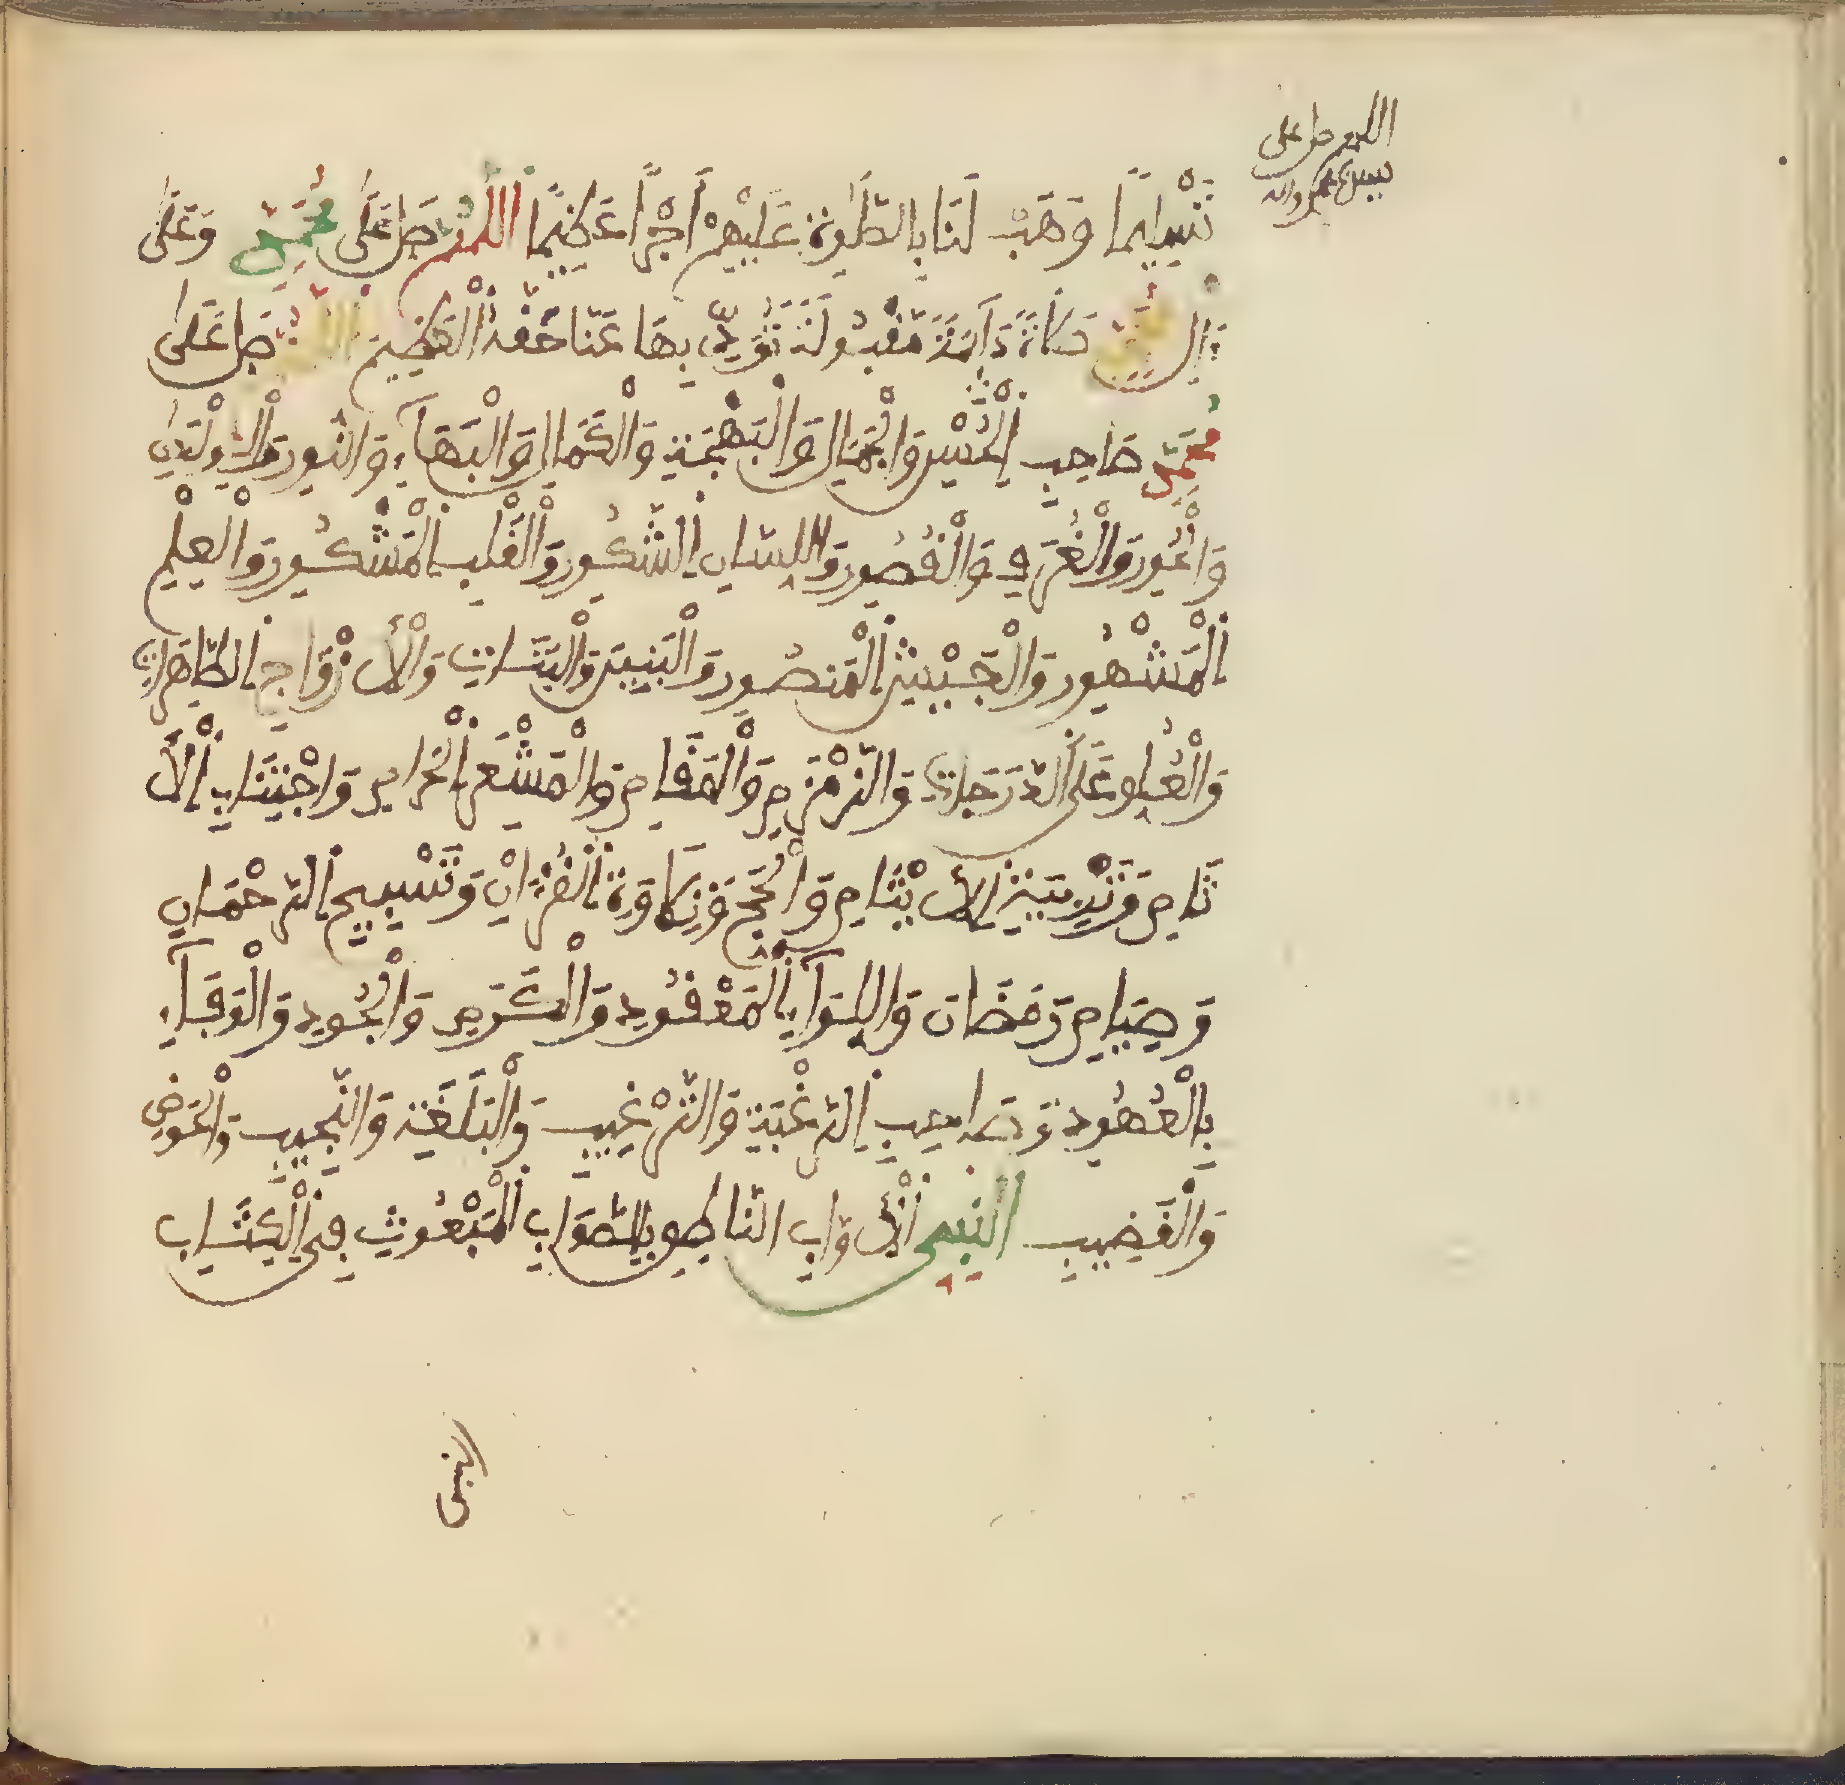 اللهم صل على
سيدنا محمد واله
تَسْلِيمًا وَهَبْ لَنَا بِالصَّلَوٰةِ عَلَيْهِمْ أَجْرًا عَظِيمًا اللَّهُمَّ صَلِّ عَلَىٰ مُحَمَّدٍ وَعَلَىٰ
ءَالِ مُحَمَّدٍ صَلَاةً دَآئِمَةً مَقْبُولَةً تُؤَدِّي بِهَا عَنَّا حَقَّهُ الْعَظِيمَ اللَّهُمَّ صَلِّ عَلَىٰ
مُحَمَّدٍ صَاحِبِ الْحُسْنِ وَالْجَمَالِ وَالْبَهْجَةِ وَالْكَمَالِ وَالْبَهَآءِ وَالنُّورِ وَالْوِلْدَانِ
وَالْحُورِ وَالْغُرَفِ وَالْقُصُورِ وَاللِّسَانِ الشَّكُورِ وَالْقَلْبِ الْمَشْكُورِ وَالْعِلْمِ
الْمَشْهُورِ وَالْجَيْشِ الْمَنْصُورِ وَالْبَنِينَ وَالْبَنَاتِ وَالْأَزْوَاجِ الطَّاهِرَاتِ
وَالْعُلُوِّ عَلَى الدَّرَجَاتِ وَالزَّمْزَمِ وَالْمَقَامِ وَالْمَشْعَرِ الْحَرَامِ وَاجْتِنَابِ الْأ
ثَامِ وَتَرْبِيَةِ الْأَيْتَامِ وَالْحَجِّ وَتِلَاوَةِ الْقُرْءَانِ وَتَسْبِيحِ الرَّحْمَانِ
وَصِيَامِ رَمَضَانَ وَاللِّوَآءِ الْمَعْقُودِ وَالْكَرَمِ وَالْجُودِ وَالْوَفَآءِ
بِالْعُهُودِ وَصَاحِبِ الرَّغْبَةِ وَالتَّرْغِيبِ وَالْبَلْغَةِ وَالنَّجِيبِ وَالْحَوْضِ
وَالْقَضِيبِ النَّبِيِّ الْأَوَّابِ النَّاطِقِ بِالصَّوَابِ الْمَبْعُوثِ فِي الْكِتَابِ
النبي